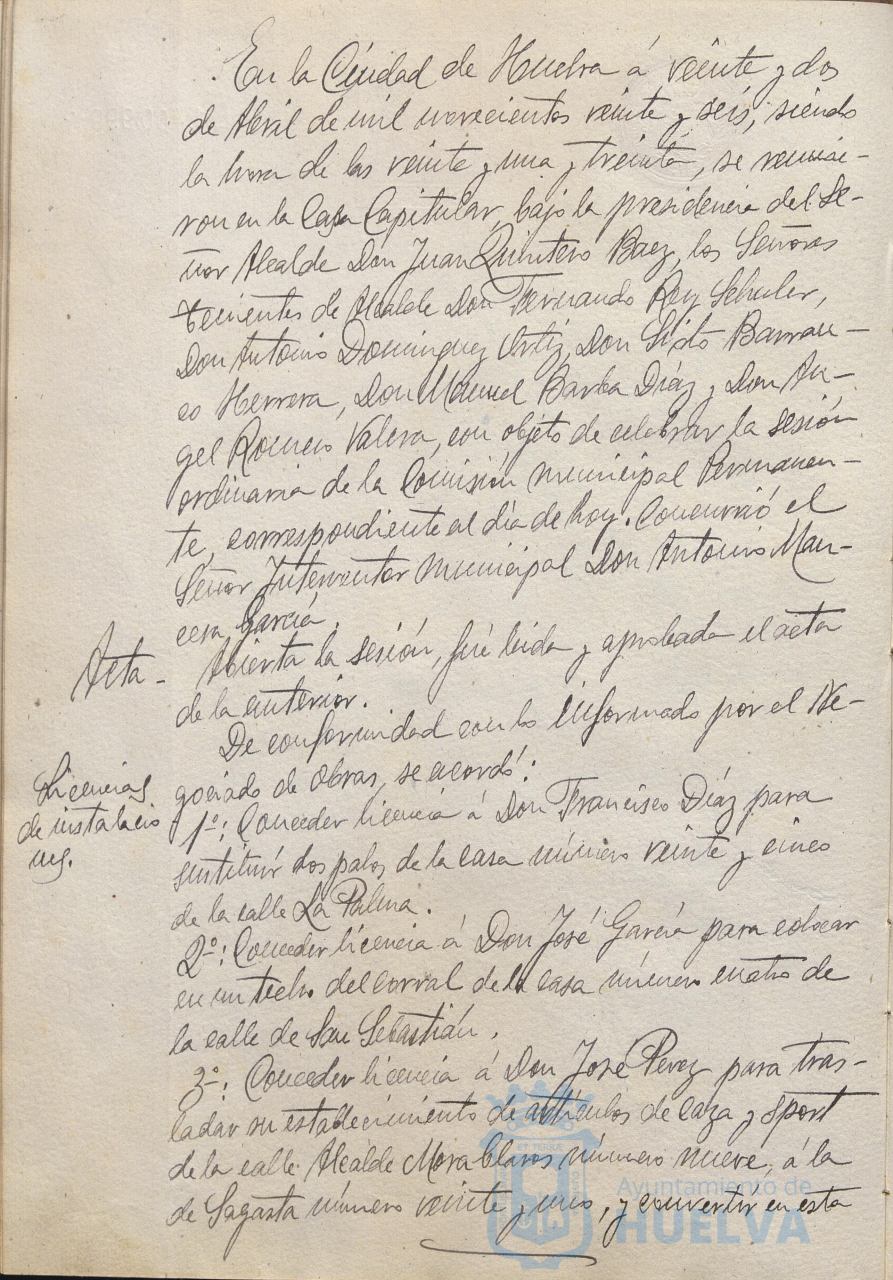 En la Ciudad de Huelva á veinte y dos
de Abril de mil novecientos veinte y seis, siendo
la hora de las veinte y una y treinta, se reunie-
ron en la Casa Capitular, bajo la presidencia del Se-
ñor Alcalde Don Juan Quintero Baez, los Señores
tenientes de Alcalde Don Fernando Rey Schuler,
Don Antonio Dominguez Ortiz, Don Sixto Barran-
co Herrera, Don Manuel Barba Diáz y Don An-
gel Romero Valera, con objeto de celebrar la sesión
ordinaria de la Comisión municipal Permanen-
te, correspondiente al día de hoy. Concurrió el
Señor Interventor municipal Don Antonio Man-
cera García.
Acta - Abierta la sesión, fué leida y aprobada el acta
de la anterior.
De conformidad con lo informado por el Ne-
gociado de Obras, se acordó:
Licencias
de instalacio
nes.
1º: Conceder licencia á Don Francisco Díaz para
sustituir dos palos de la casa número veinte y cinco
de la calle La Palma.
2º: Conceder licencia á Don José García para colocar
en un techo del corral de la casa número cuatro de
la calle de San Sebastián.
3º: Conceder licencia á Don José Perez para tras-
ladar su establecimiento de artículos de caza y sport
de la calle Alcalde Mora Claros número nueve, á la
de Sagasta número veinte y uno, y convertir en esta
Ayuntamiento de
HUELVA